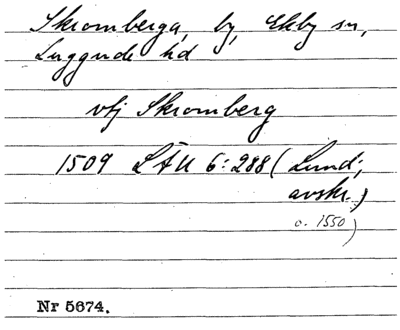 Skromberga, by, Ekby sn,
Luggude hd
vbj Skromberg
1509 LÄU 6:288 (Lund;
avskr.)
c. 1550)
Nr 5674.